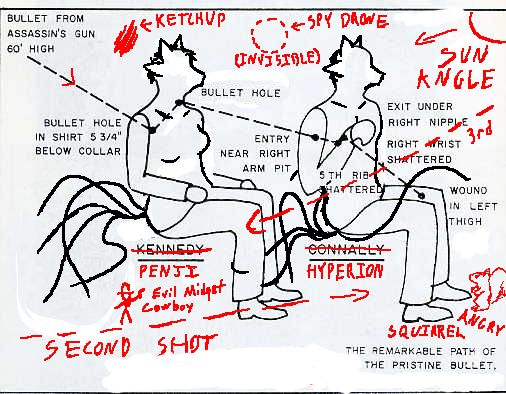 BULLET FROM
ASSASSIN'S GUN
60' HIGH
KETCHUP
SPY DRONE
(INVISIBLE)
SUN
ANGLE
BULLET HOLE
BULLET HOLE
IN SHIRT 5 3/4"
BELOW COLLAR
EXIT UNDER
RIGHT NIPPLE
3rd
ENTRY
NEAR RIGHT
ARM PIT
RIGHT WRIST
SHATTERED
5TH RIB
SHATTERED
WOUND
IN LEFT
THIGH
KENNEDY
PENJI
CONNALLY
HYPERION
Evil Midget
Cowboy
SECOND SHOT
SQUIRREL
ANGRY
THE REMARKABLE PATH OF
THE PRISTINE BULLET,